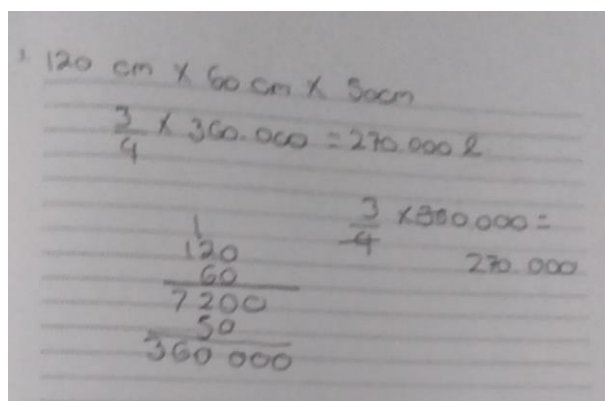 3. 120 cm x 60 cm x 50cm
3/4 x 360.000 = 270.000 l
1
120
60
7200
50
360 000
3/4 x 360.000 =
270 000